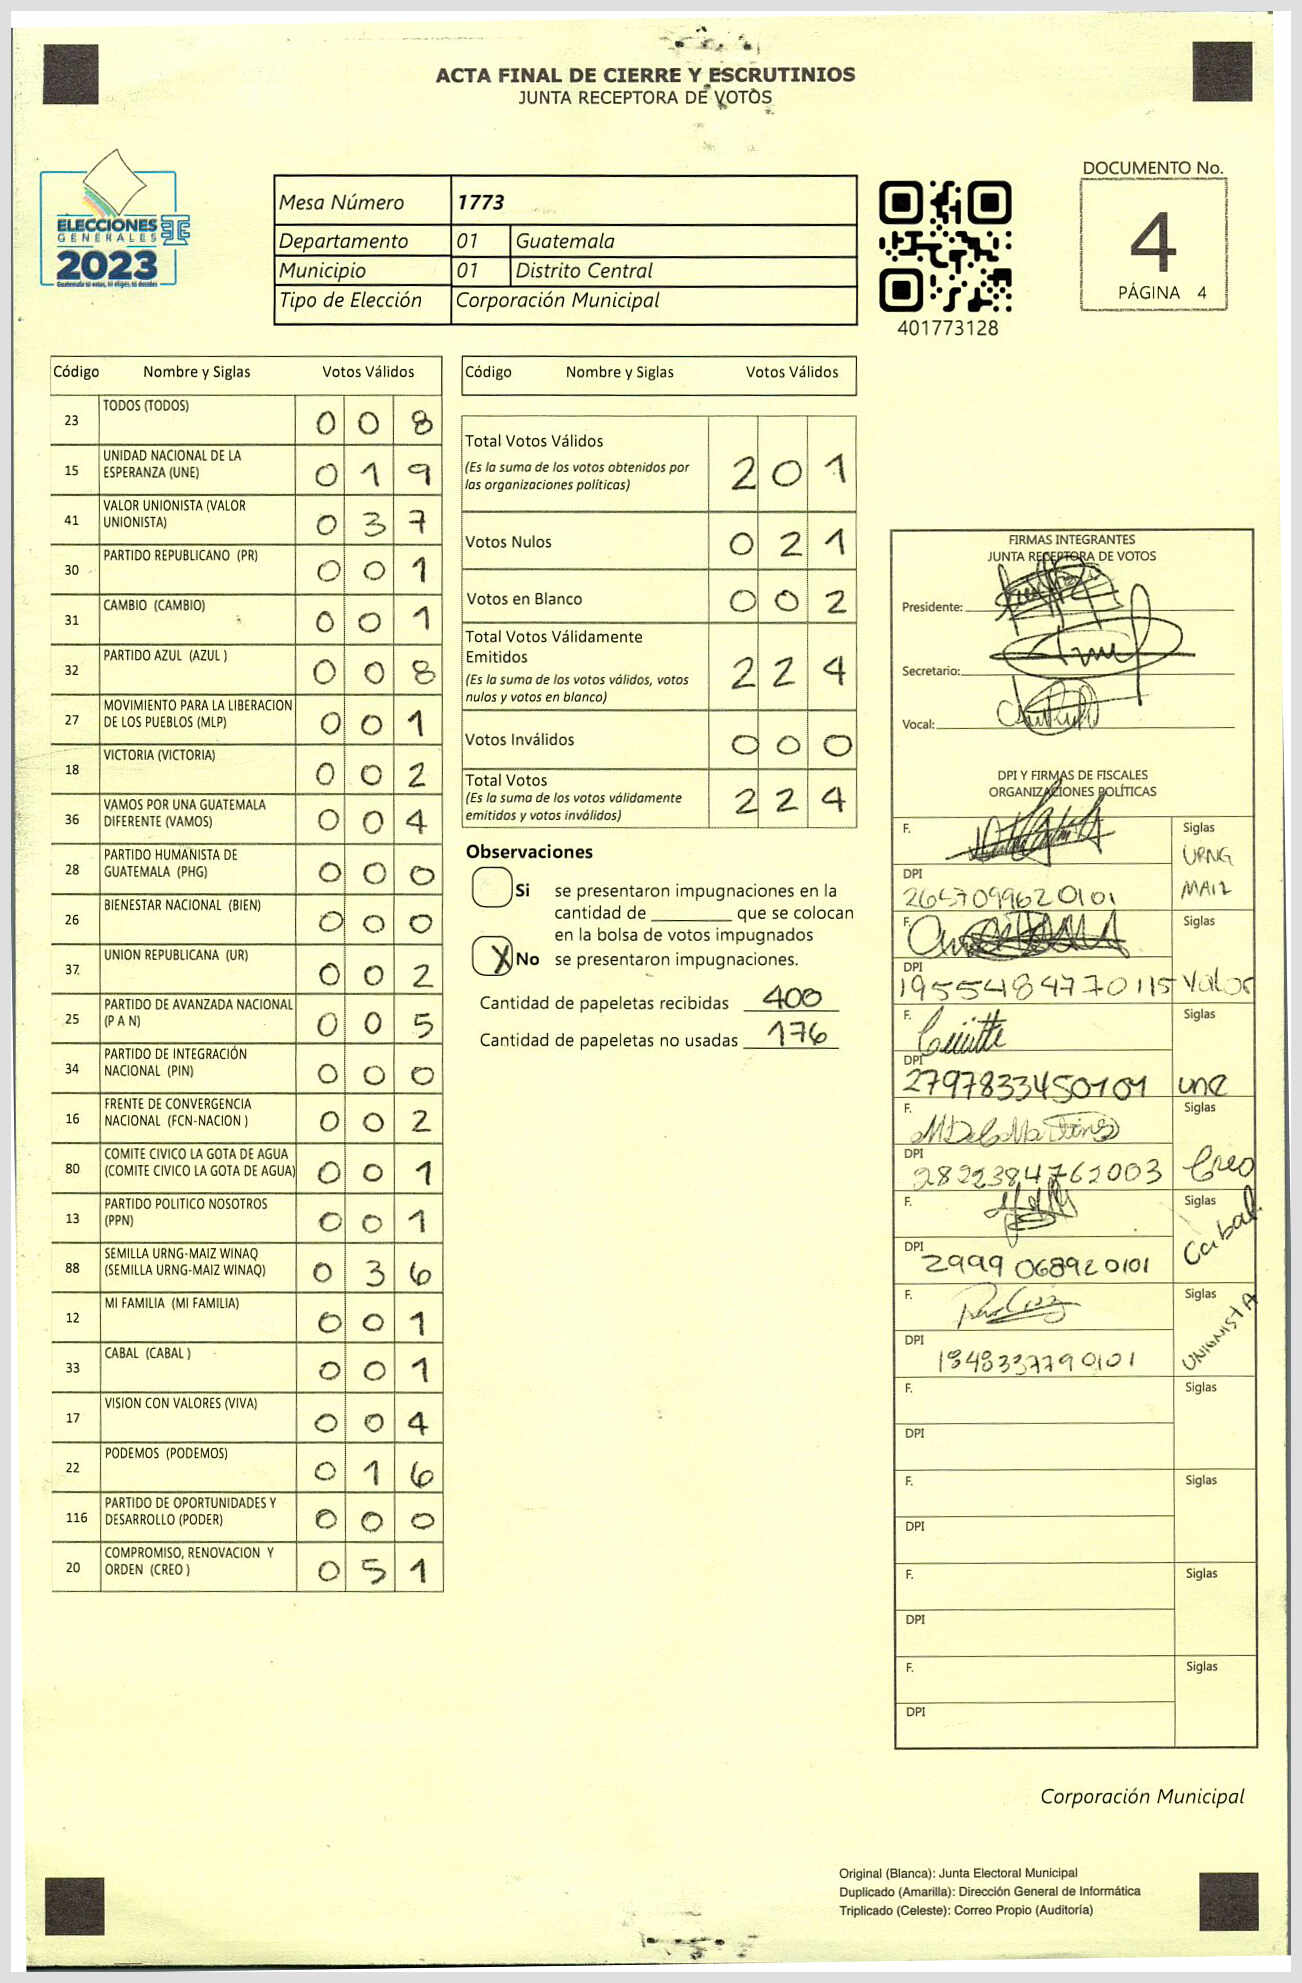 ACTA FINAL DE CIERRE Y ESCRUTINIOS
JUNTA RECEPTORA DE VOTOS
ELECCIONES
GENERALES
2023
Guatemala tú votas, tú eliges, tú decides
Mesa Número 1773
Departamento 01 Guatemala
Municipio 01 Distrito Central
Tipo de Elección Corporación Municipal
401773128
DOCUMENTO No.
4
PÁGINA 4
Código Nombre y Siglas Votos Válidos
23 TODOS (TODOS) 0 0 8
15 UNIDAD NACIONAL DE LA
ESPERANZA (UNE) 0 1 9
41 VALOR UNIONISTA (VALOR
UNIONISTA) 0 3 7
30 PARTIDO REPUBLICANO (PR) 0 0 1
31 CAMBIO (CAMBIO) 0 0 1
32 PARTIDO AZUL (AZUL ) 0 0 8
27 MOVIMIENTO PARA LA LIBERACION
DE LOS PUEBLOS (MLP) 0 0 1
18 VICTORIA (VICTORIA) 0 0 2
36 VAMOS POR UNA GUATEMALA
DIFERENTE (VAMOS) 0 0 4
28 PARTIDO HUMANISTA DE
GUATEMALA (PHG) 0 0 0
26 BIENESTAR NACIONAL (BIEN) 0 0 0
37 UNION REPUBLICANA (UR) 0 0 2
25 PARTIDO DE AVANZADA NACIONAL
(P A N) 0 0 5
34 PARTIDO DE INTEGRACIÓN
NACIONAL (PIN) 0 0 0
16 FRENTE DE CONVERGENCIA
NACIONAL (FCN-NACION ) 0 0 2
80 COMITE CIVICO LA GOTA DE AGUA
(COMITE CIVICO LA GOTA DE AGUA) 0 0 1
13 PARTIDO POLITICO NOSOTROS
(PPN) 0 0 1
88 SEMILLA URNG-MAIZ WINAQ
(SEMILLA URNG-MAIZ WINAQ) 0 3 6
12 MI FAMILIA (MI FAMILIA) 0 0 1
33 CABAL (CABAL ) 0 0 1
17 VISION CON VALORES (VIVA) 0 0 4
22 PODEMOS (PODEMOS) 0 1 6
116 PARTIDO DE OPORTUNIDADES Y
DESARROLLO (PODER) 0 0 0
20 COMPROMISO, RENOVACION Y
ORDEN (CREO ) 0 5 1
Código Nombre y Siglas Votos Válidos
Total Votos Válidos
(Es la suma de los votos obtenidos por
las organizaciones políticas) 2 0 1
Votos Nulos 0 2 1
Votos en Blanco 0 0 2
Total Votos Válidamente
Emitidos
(Es la suma de los votos válidos, votos
nulos y votos en blanco) 2 2 4
Votos Inválidos 0 0 0
Total Votos
(Es la suma de los votos válidamente
emitidos y votos inválidos) 2 2 4
Observaciones
Si se presentaron impugnaciones en la
cantidad de ________ que se colocan
en la bolsa de votos impugnados
X No se presentaron impugnaciones.
Cantidad de papeletas recibidas 400
Cantidad de papeletas no usadas 176
FIRMAS INTEGRANTES
JUNTA RECEPTORA DE VOTOS
Presidente:
Secretario:
Vocal:
DPI Y FIRMAS DE FISCALES
ORGANIZACIONES POLÍTICAS
F. Siglas
URNG
MAIZ
DPI
2657099620101
F. Siglas
DPI
1955484770115 Valor
F. Siglas
DPI
2797833450101 une
F. Siglas
DPI
2822384762003 Creo
F. Siglas
Cabal
DPI
2999068920101
F. Siglas
UNIONISTA
DPI
1848337790101
F. Siglas
DPI
F. Siglas
DPI
F. Siglas
DPI
F. Siglas
DPI
Corporación Municipal
Original (Blanca): Junta Electoral Municipal
Duplicado (Amarilla): Dirección General de Informática
Triplicado (Celeste): Correo Propio (Auditoría)